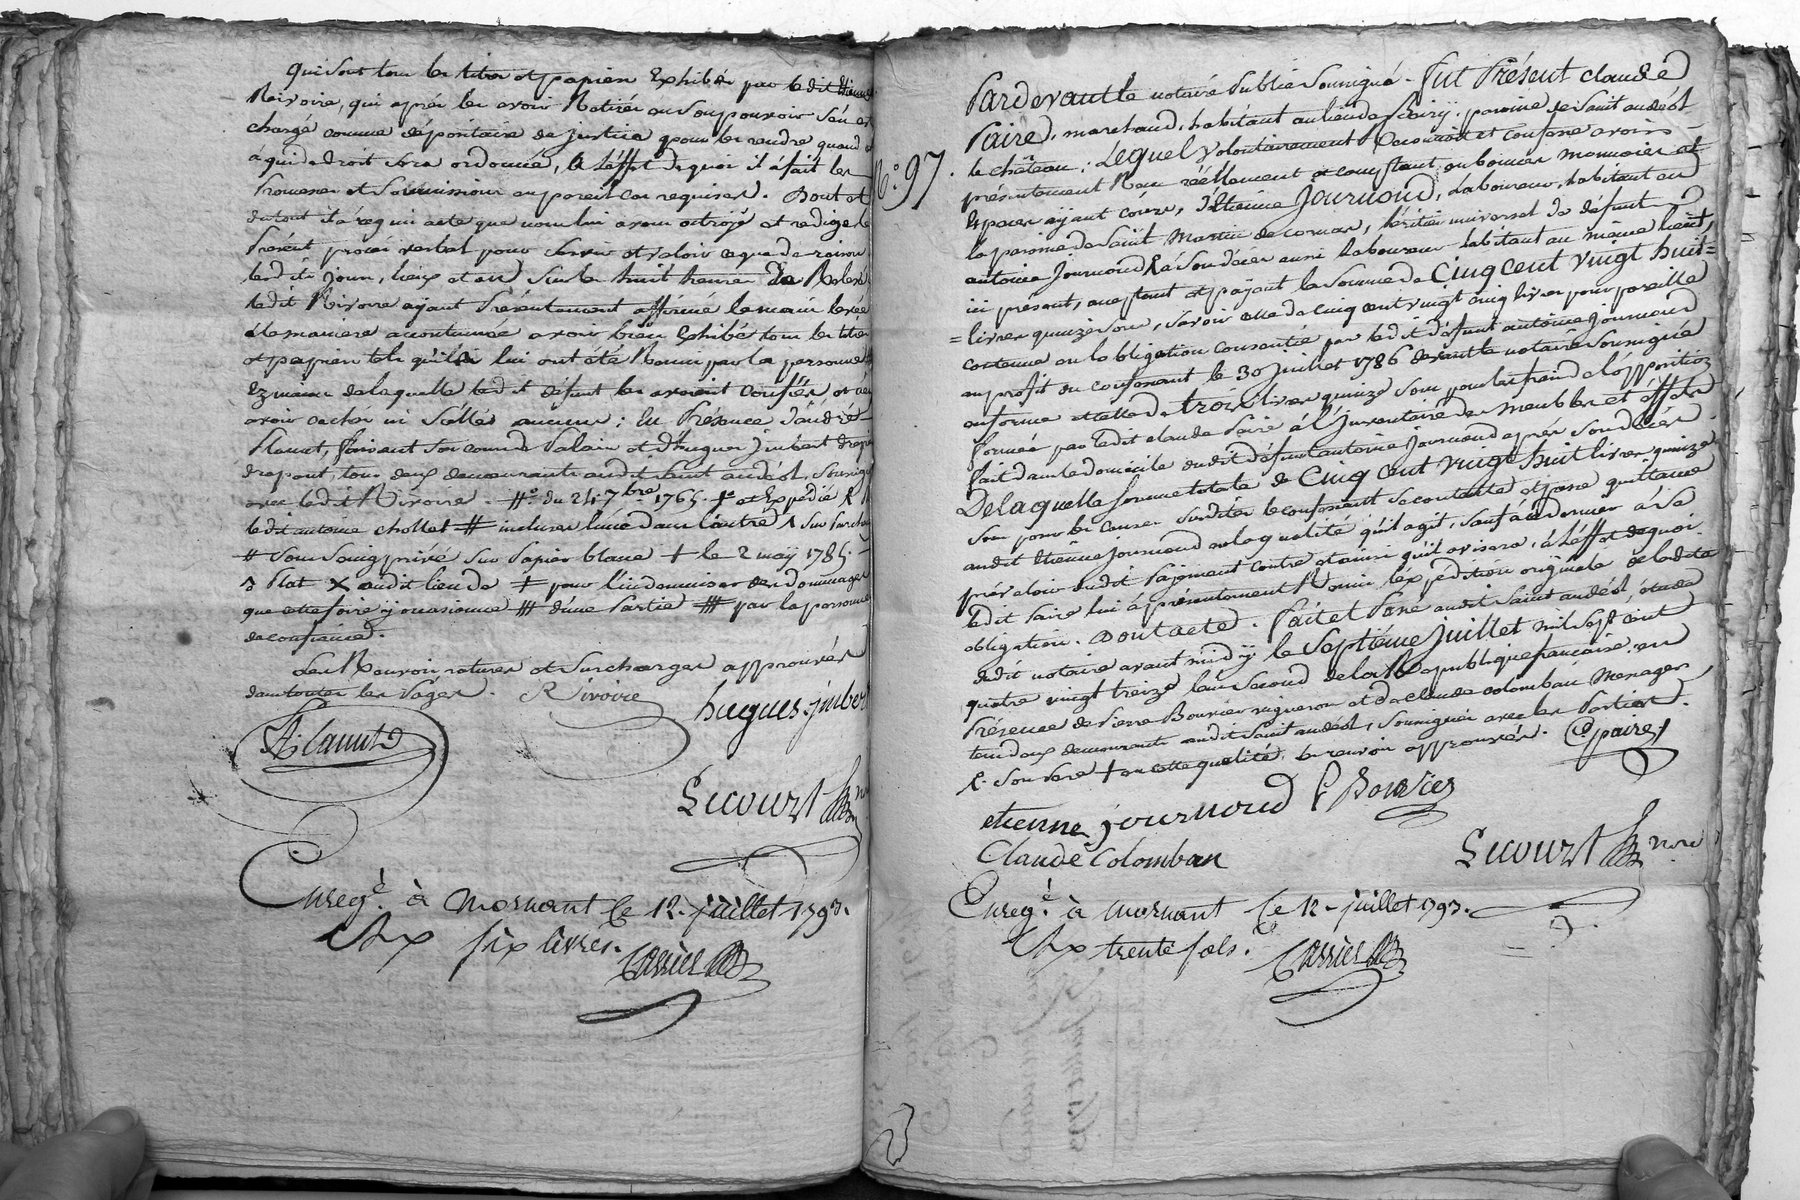 Qui sont tous les titres et papiers Exhibés par ledit Etienne
Rivoire, qui après les avoir Retirés en son pouvoir s'en est
chargé comme dépositaire de justice pour les rendre quand et
à qui de droit sera ordonné, à L'éffet de quoi il a fait les
Promesses et Soumissions en pareil cas requises. Dont et
du tout il a requis acte que nous lui avons octroyé et redigé le
Présent procès verbal pour servir et valoir ce que de raison
lesdits jour, lieu et an Sur les huit heures
ledit Rivoire ayant Présentement affirmé la main levée
à la maniere accoutumée avoir bien Exhibé tous les titres
et papiers tels qu'ils lui ont été Remis par la personne
Ez mains de laquelle ledit défunt les avoient confiés et
avoir caché ni scellés aucuns ; En Présence d'andré
Planut, faisant son commis Palais et d'hugues jmbert
drapant, tous deux demeurants audit saint andéol, soussignés
avec ledit Rivoire. ⧺ du 24 7bre 1765. ‡ et Expédié
ledit antoine chollet ⧺ incluses l'une dans l'autre Sur
⧺ sous seing privé sur Papier blanc + le 2 may 1785.
Plat × audit lieu de ‡ pour l'indemniser des dommages
que cette foire y occasionne ⧻ d'une Partie ⧻ par la personne
de confiance.
Les Renvoirs ratures et Surcharges approuvés
dans toutes les Pages. Rivoire hugues jmbert
A: Lanut
Lecourt nore
Enregé. à mornant le 12 juillet 1793.
six livres. Carrier
No. 97.
Pardevant le notaire Public soussigné. Fut Présent claude
Paire, marchand, habitant au lieu de parroisse de Saint andéol
le château ; Lequel volontairement Reconnoit et confesse avoir
présentement Reçu réellement et comptant, en bonnes monnoies et
Espèces ayant cours, d'Etienne Journoud, Laboureur, habitant en
la paroisse de Saint Martin de cornas, héritier universel de défunt
antoine Journoud & Son Père aussi Laboureur habitant au même lieu,
ici présent, acceptant et payant la somme de Cinq cent vingt huit=
=livres quinze sous, savoir celle de cinq cent vingt cinq livres pour pareille
contenue en lobligation consentie par ledit défunt antoine Journoud
au profit du confessant le 30 juillet 1786 devant le notaire Soussigné
en forme et celle de trois livres quinze sous pour les fraix de lópposition
formée par ledit claude Paire à l'Inventaire des meubles et éffets
fait dans le domicile dudit défunt antoine Journoud après son décès
De laquelle somme totale de Cinq cent vingt huit livres quinze
sous pour les causes Susdites le confessant se contente et passe quittance
audit Etienne Journoud en la qualité qu'il agit, sauf à ce dernier à se
prévaloir dudit Payement contre et ainsi qu'il avisera, à L'éffet de quoi
ledit Paire lui à présentement Remis l'éxpédition originale de ladite
obligation. Dont acte. Fait et Passé audit Saint andéol, étude
dudit notaire avant midy le Septième juillet mil sept cent
quatre vingt treize l'an Second de la République française, en
Présence de Pierre Bouvier vigneron et de claude colomban Menager
tous deux demeurants audit Saint andéol, soussignés avec les Parties.
& son Père + en cette qualité. les renvois approuvés. Cpaire
etienne journoud P Bouvier
Claude Colomban
Lecourt nore
Enregé. à mornant le 12 juillet 1793.
trente sols. Carrier